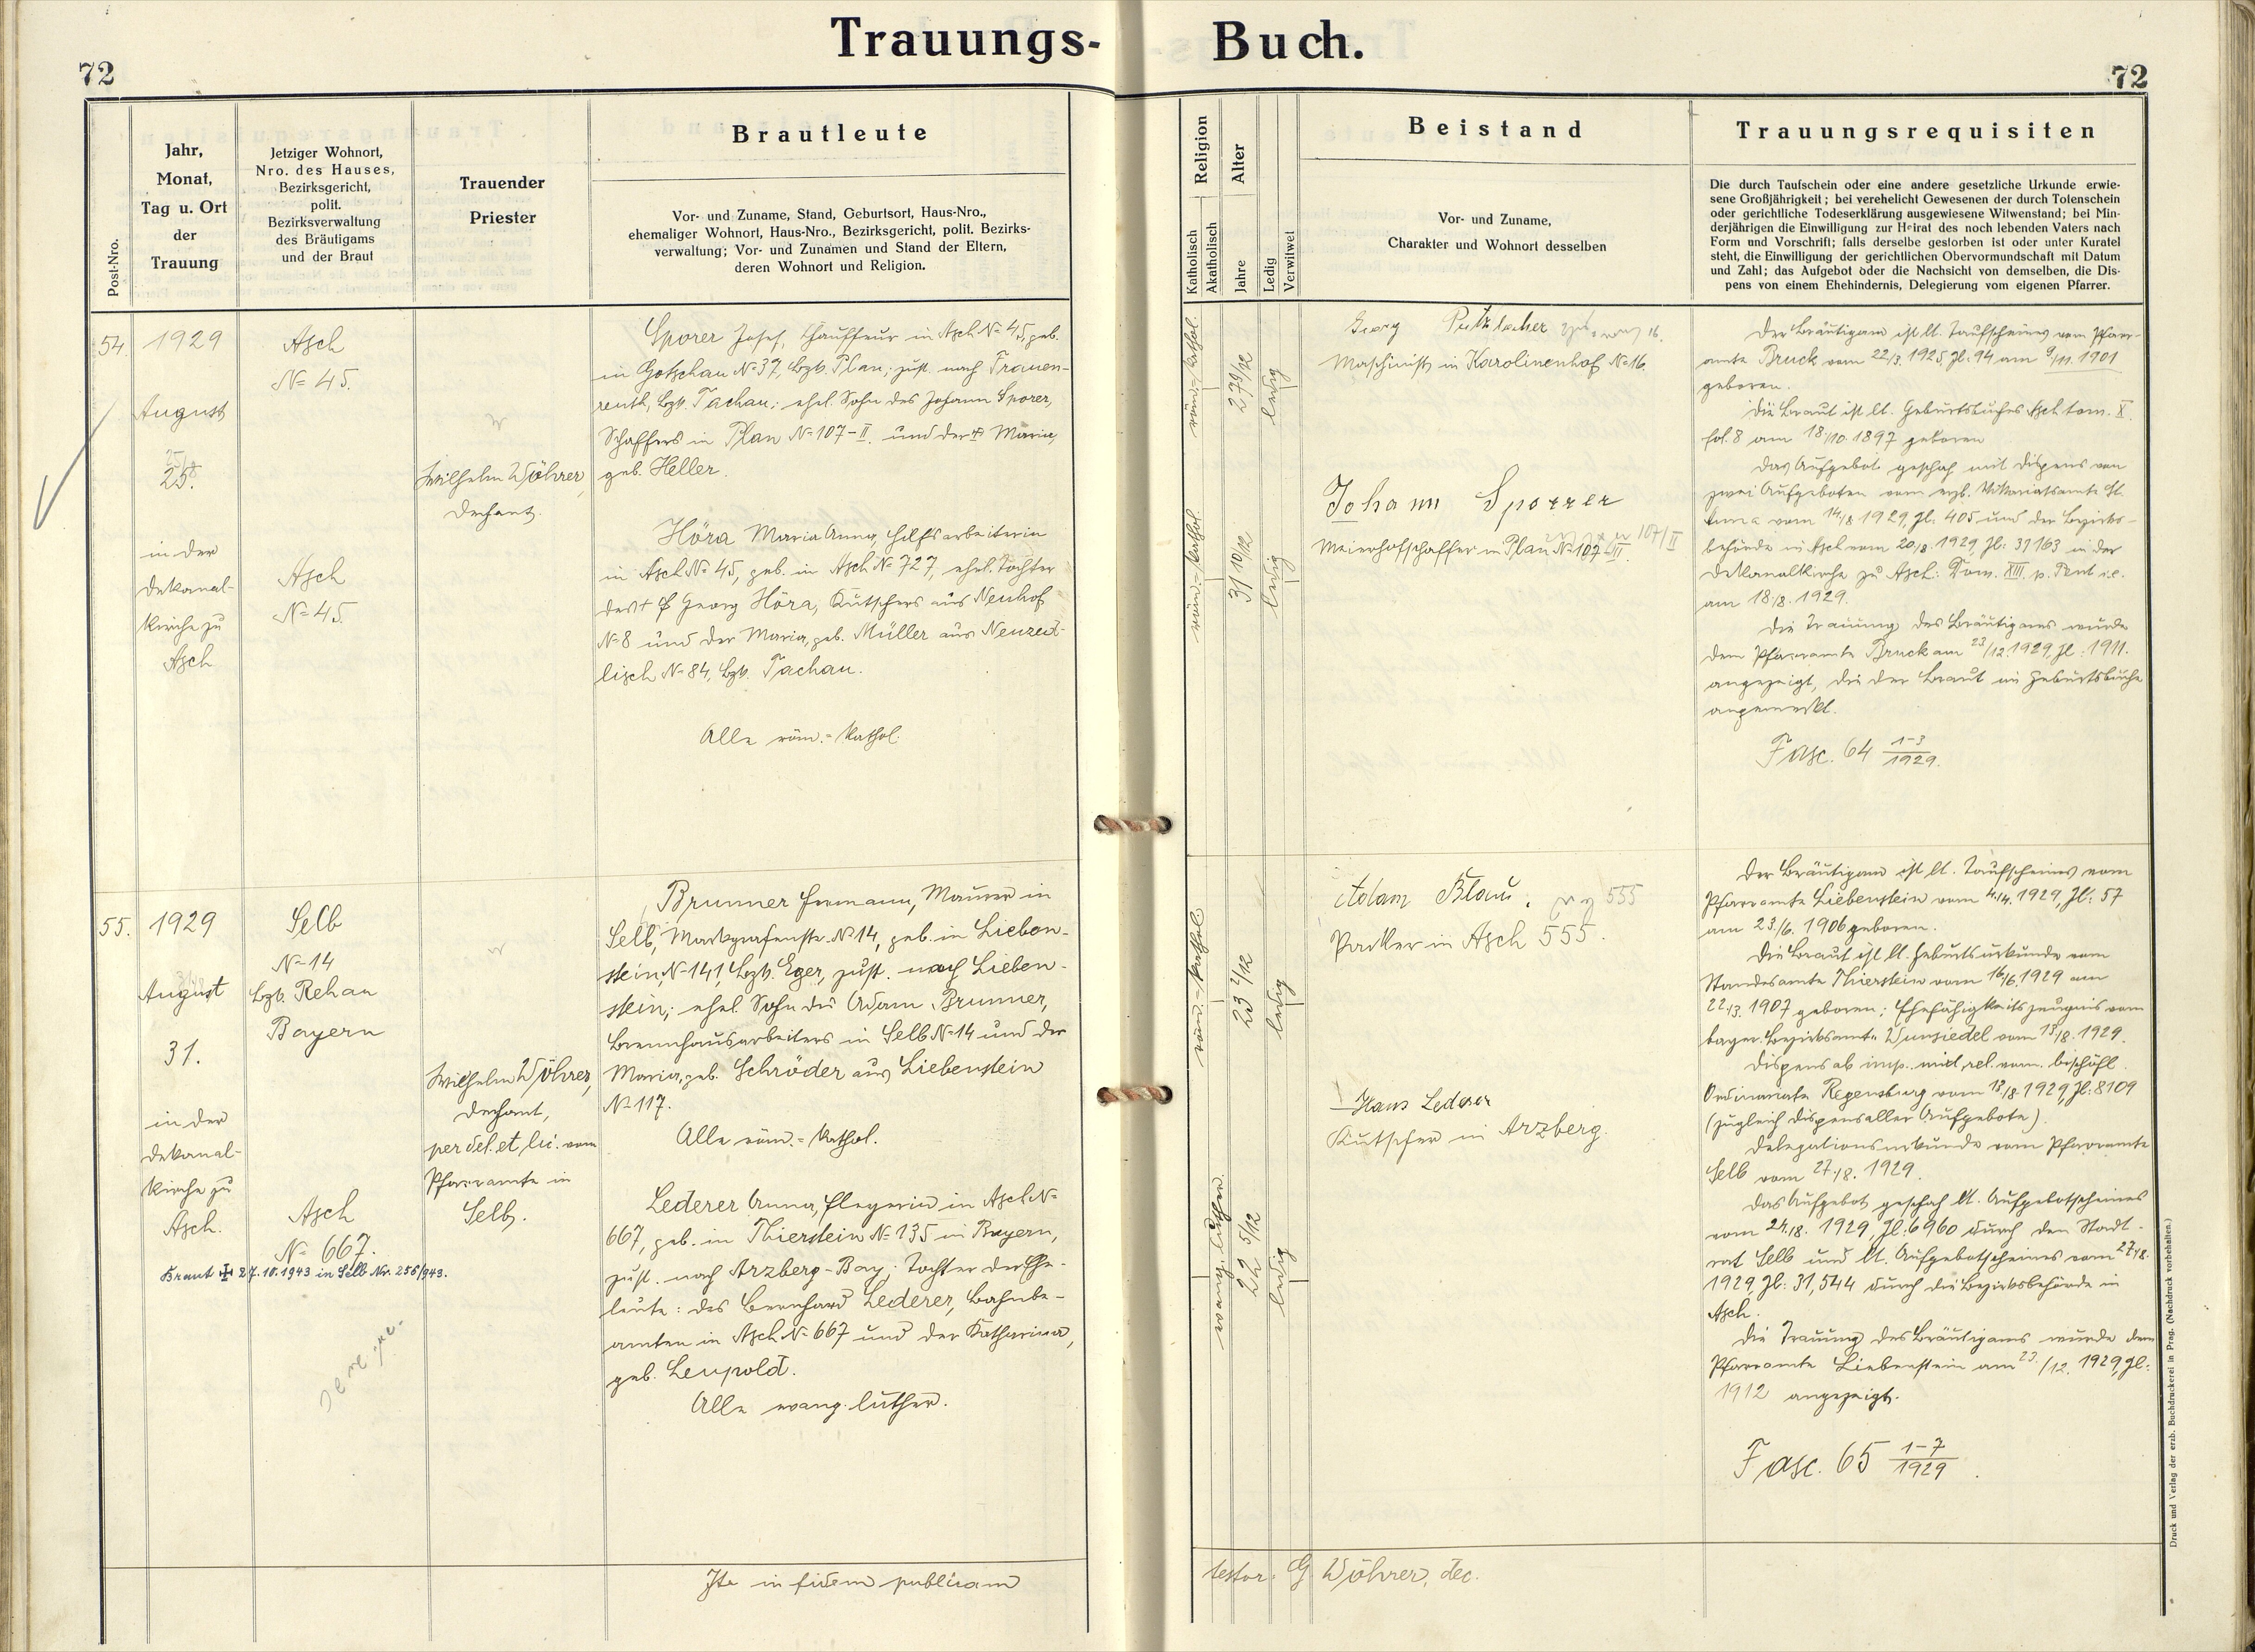 Trauungs-Buch.
72
72
Post-Nro.
Jahr,
Monat,
Tag u. Ort
der
Trauung
Jetziger Wohnort,
Nro. des Hauses,
Bezirksgericht,
polit.
Bezirksverwaltung
des Bräutigams
und der Braut
Trauender
Priester
Brautleute
Vor- und Zuname, Stand, Geburtsort, Haus-Nro.,
ehemaliger Wohnort, Haus-Nro., Bezirksgericht, polit. Bezirks-
verwaltung; Vor- und Zunamen und Stand der Eltern,
deren Wohnort und Religion.
Religion
Katholisch
Akatholisch
Alter
Jahre
Ledig
Verwitwet
Beistand
Vor- und Zuname,
Charakter und Wohnort desselben
Trauungsrequisiten
Die durch Taufschein oder eine andere gesetzliche Urkunde erwie-
sene Großjährigkeit; bei verehelicht Gewesenen der durch Totenschein
oder gerichtliche Todeserklärung ausgewiesene Witwenstand; bei Min-
derjährigen die Einwilligung zur Heirat des noch lebenden Vaters nach
Form und Vorschrift; falls derselbe gestorben ist oder unter Kuratel
steht, die Einwilligung der gerichtlichen Obervormundschaft mit Datum
und Zahl; das Aufgebot oder die Nachsicht von demselben, die Dis-
pens von einem Ehehindernis, Delegierung vom eigenen Pfarrer.
54.
1929
August
25.
in der
Dekanal-
kirche zu
Asch
Asch
№ 45.
Asch
№ 45.
Wilhelm Wöhrer,
Dechant.
Sporer Josef, Chauffeur in Asch № 45, geb.
in Gotschau № 37, Bzk. Plan; zust. nach Frauen-
reuth, Bzk. Tachau; ehel. Sohn des Johann Sporer,
Schaffers in Plan № 107-II. und der Maria,
geb. Heller.
Höra Maria Anna, Hilfsarbeiterin
in Asch № 45, geb. in Asch № 727, ehel. Tochter
des † Georg Höra, Kutschers aus Neuhof
№ 8 und der Maria, geb. Müller aus Neuzed-
lisch № 84, Bzk. Tachau.
Alle röm.-kathol.
röm.-kathol.
27 9/12
ledig
röm.-kathol.
31 10/12
ledig
Georg Putzlacher
Maschinist in Karolinenhof № 16.
Johann Sporrer
Meierhofschaffer in Plan № 107-II.
Der Bräutigam ist lt. Taufscheines vom Pfarr-
amte Bruck vom 22/3. 1925, Zl: 94 am 9/11. 1901
geboren.
Die Braut ist lt. Geburtsbuches Asch tom. X.
fol. 8 am 18/10. 1897 geboren
Das Aufgebot geschah mit Dispens von
zwei Aufgeboten vom erzb. Vikariatsamte St.
Anna vom 14/8 1929, Zl: 405 und der Bezirks-
behörde in Asch vom 20/8. 1929, Zl: 31163 in der
Dekanalkirche zu Asch: Dom. XIII. p. Pent i.e.
am 18/8. 1929.
Die Trauung des Bräutigams wurde
dem Pfarramte Bruck am 23/12. 1929, Zl: 1911.
angezeigt, die der Braut im Geburtsbuche
angemerkt.
Fasc. 64 1-3/1929.
55.
1929
August
31.
in der
Dekanal-
kirche zu
Asch.
Selb
№ 14
Bzk. Rehau
Bayern
Asch
№ 667.
Braut ✠ 27.10.1943 in Selb Nr. 256/943.
Wilhelm Wöhrer,
Dechant,
per del. et lic. vom
Pfarramte in
Selb.
Brunner Hermann, Maurer in
Selb, Markgrafenstr. № 14, geb. in Lieben-
stein, № 141, Bzk. Eger, zust. nach Lieben-
stein; ehel. Sohn des Adam Brunner,
Brennhausarbeiters in Selb № 14 und der
Maria, geb. Schröder aus Liebenstein
№ 117.
Alle röm.-kathol.
Lederer Anna, Pflegerin in Asch №
667, geb. in Thierstein № 135 in Bayern,
zust. nach Arzberg-Bay; Tochter der Ehe-
leute: des Bernhard Lederer, Bahnbe-
amten in Asch № 667 und der Katharina,
geb. Leupold.
Alle evang. luther.
röm.-kathol.
23 2/12
ledig
evang. luther.
22 5/12
ledig
Adam Blau.
555
Packer in Asch 555.
Hans Lederer
Kutscher in Arzberg.
Der Bräutigam ist lt. Taufscheines vom
Pfarramte Liebenstein vom 4./4. 1929, Zl: 57
am 23./6. 1906 geboren.
Die Braut ist lt. Geburtsurkunde vom
Standesamte Thierstein vom 16/6. 1929 am
22./3. 1907 geboren; Ehefähigkeitszeugnis vom
bayer. Bezirksamte Wunsiedel vom 13/8. 1929.
Dispens ab imp. mixt. rel. vom bischöfl.
Ordinariate Regensburg vom 13/8. 1929, Zl: 8109
(zugleich Dispens aller Aufgebote).
Delegationsurkunde vom Pfarramte
Selb vom 27./8. 1929.
Das Aufgebot geschah lt. Aufgebotscheines
vom 24./8. 1929, Zl: 6960 durch den Stadt-
rat Selb und lt. Aufgebotscheines vom 27/8.
1929, Zl: 31,544 durch die Bezirksbehörde in
Asch.
Die Trauung des Bräutigams wurde dem
Pfarramte Liebenstein am 23./12. 1929, Zl:
1912 angezeigt.
Fasc. 65 1-7/1929.
Ita in fidem publicam
testor: G Wöhrer, dec.
Druck und Verlag der erzb. Buchdruckerei in Prag. (Nachdruck vorbehalten.)